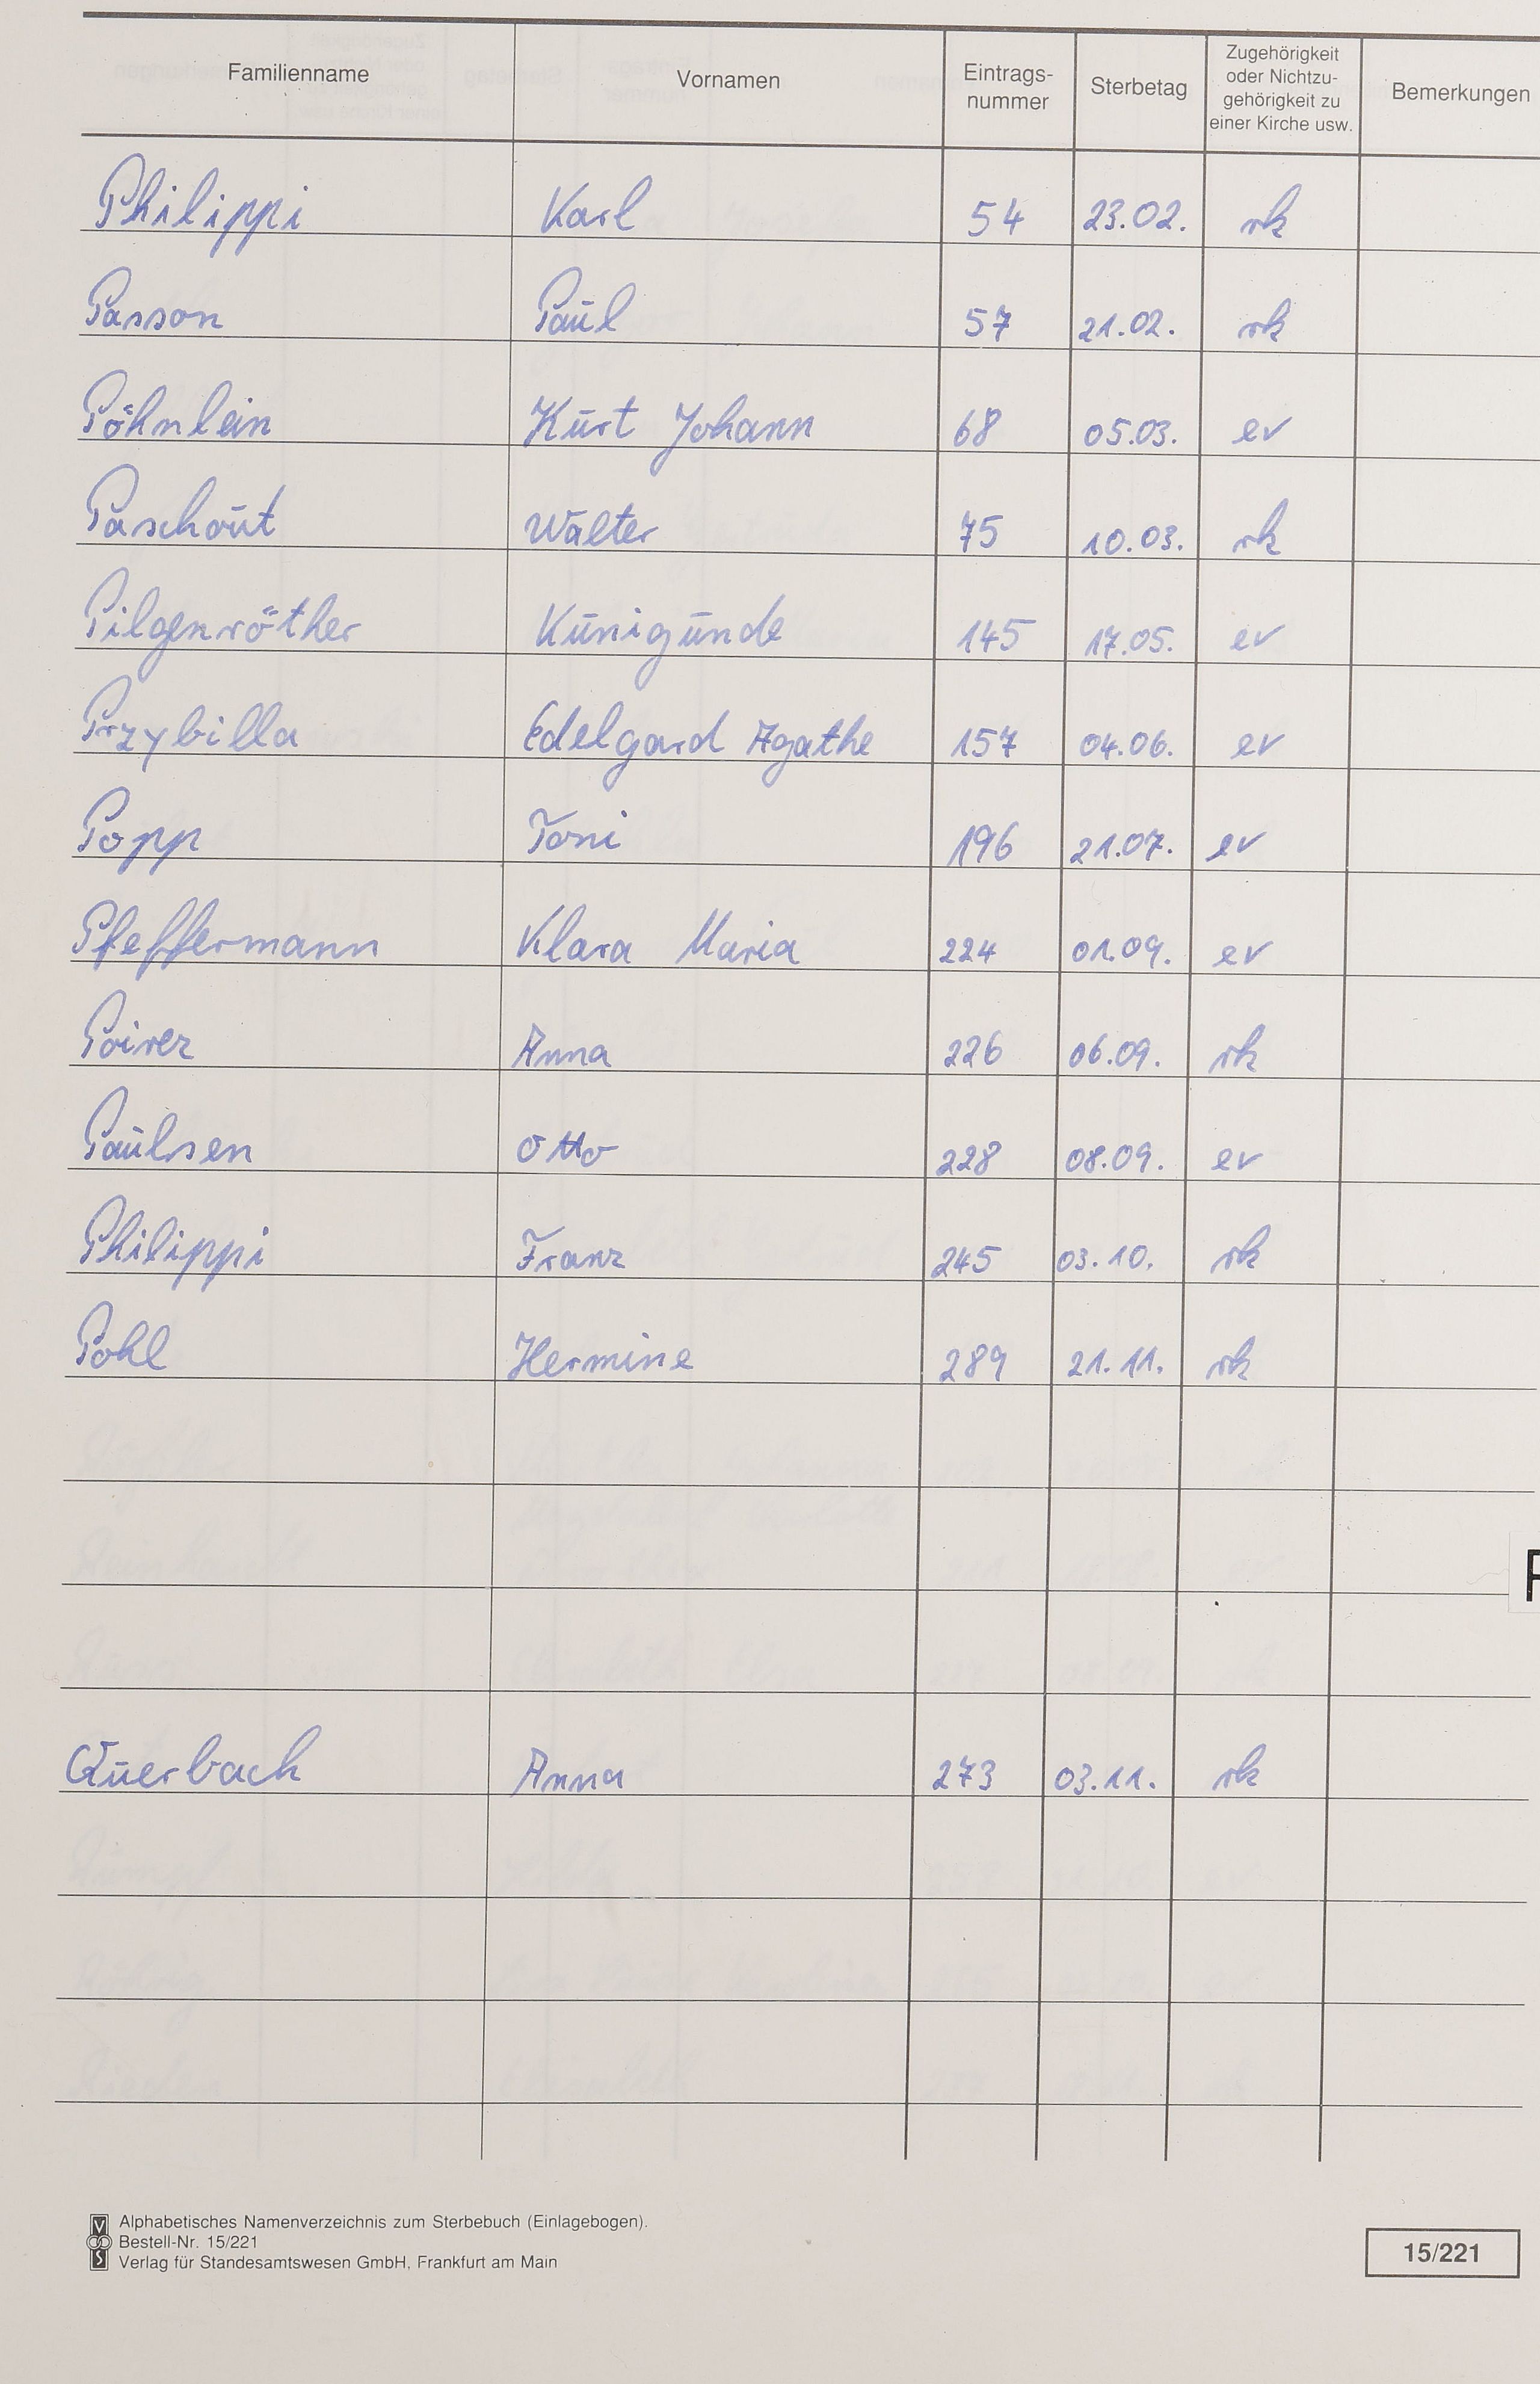 Familienname Vornamen Eintrags-nummer Sterbetag Zugehörigkeit oder Nichtzu-gehörigkeit zu einer Kirche usw. Bemerkungen
Philippi Karl 54 23.02. rk
Passon Paul 57 21.02. rk
Pöhnlein Kurt Johann 68 05.03. ev
Paschout Walter 75 10.03. rk
Pilgenröther Kunigunde 145 17.05. ev
Przybilla Edelgard Agathe 157 04.06. ev
Popp Toni 196 21.07. ev
Pfeffermann Klara Maria 224 01.09. ev
Poirez Anna 226 06.09. rk
Paulsen Otto 228 08.09. ev
Philippi Franz 245 03.10. rk
Pohl Hermine 289 21.11. rk
Querbach Anna 273 03.11. rk
Alphabetisches Namenverzeichnis zum Sterbebuch (Einlagebogen).
Bestell-Nr. 15/221
Verlag für Standesamtswesen GmbH, Frankfurt am Main
15/221